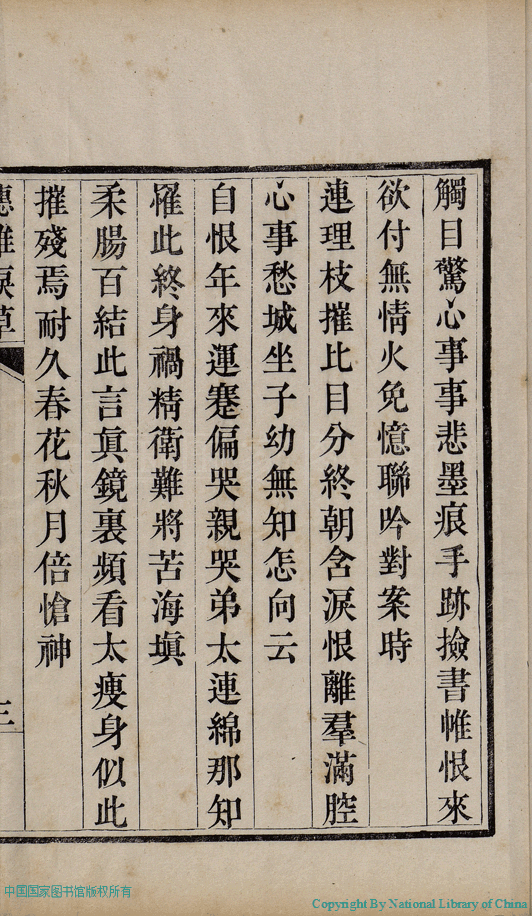 觸目驚心事事悲墨痕手跡撿書帷恨來
欲付無情火免憶聯吟對案時
連理枝摧比目分終朝含淚恨離羣滿腔
心事愁城坐子幼無知怎向云
自恨年來運蹇偏哭親哭弟太連綿那知
罹此終身禍精衛難將苦海塡
柔腸百結此言眞鏡裏頻看太瘦身似此
摧殘焉耐久春花秋月倍愴神
三
中国国家图书馆版权所有
Copyright By National Library of China